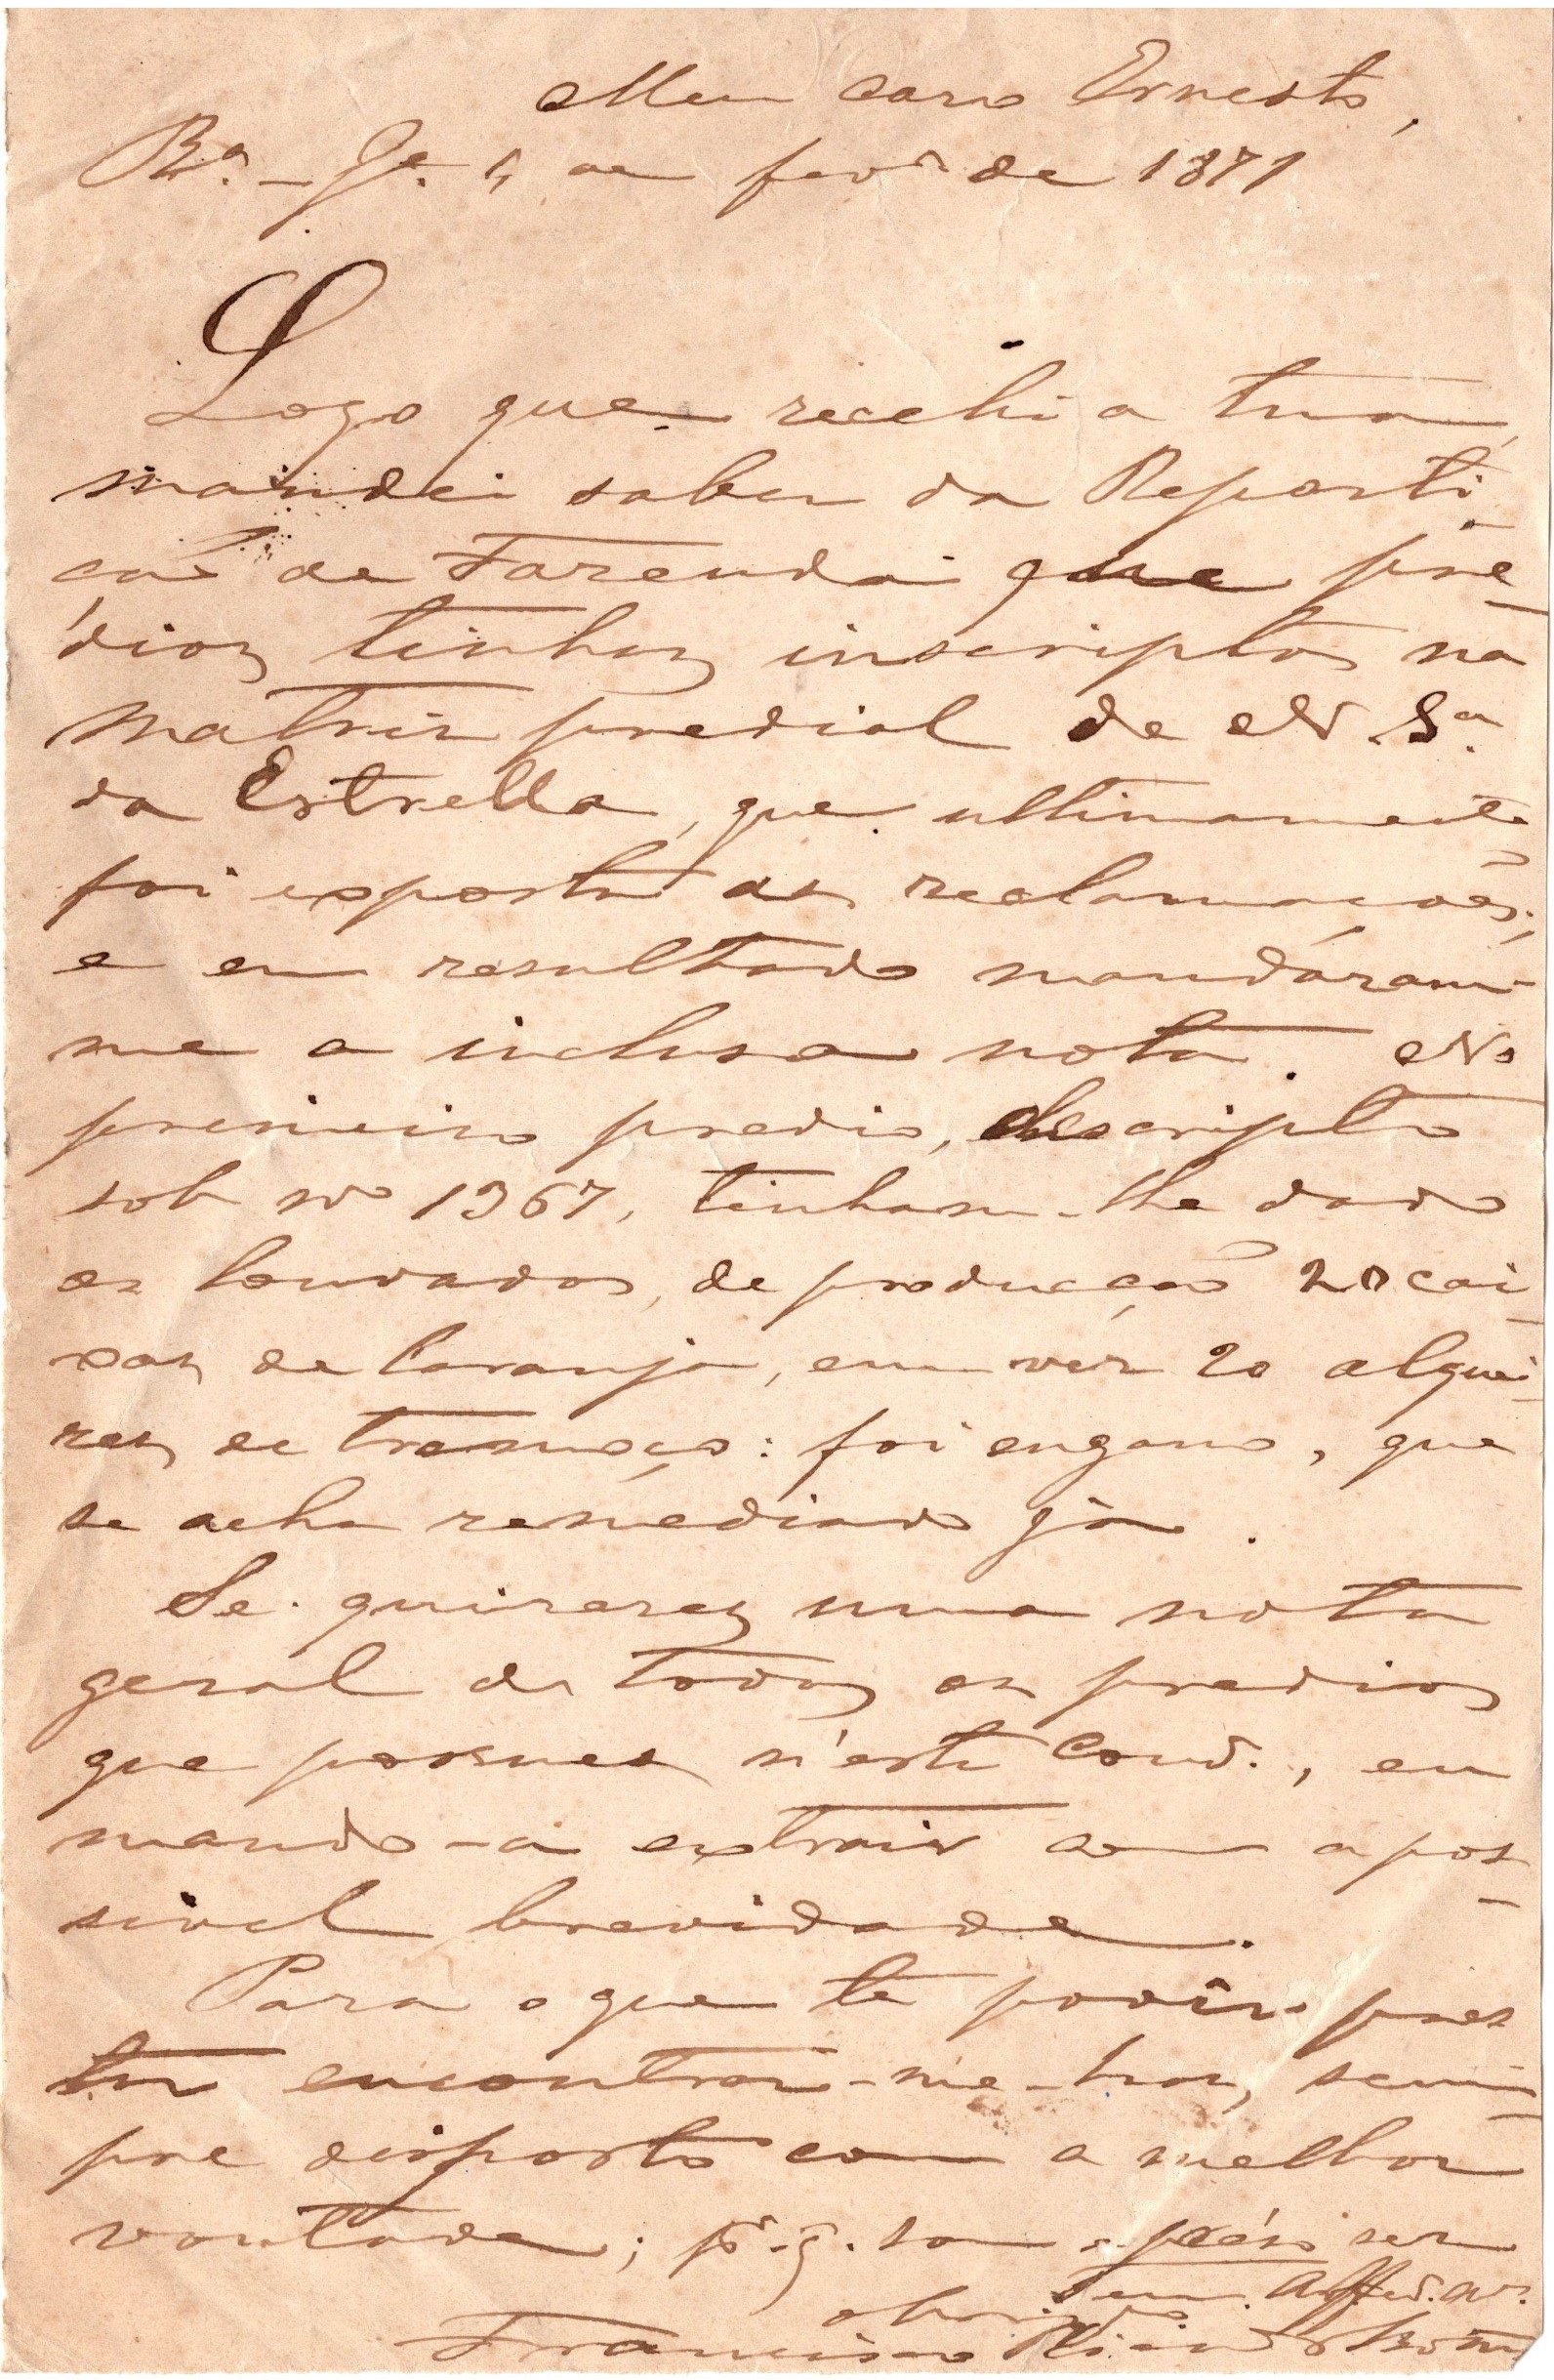 Meu caro Ernesto,
Rª. - Gª. 5 de fevº de 1871
Logo que recebi a tua,
mandei saber da Reparti-
ção de Fazenda que pre-
dios tinhas inscriptos na
matriz predial de N. Sª.
da Estrella, que ultimamente
foi exposta as reclamações;
e em resultado mandáram-
me a inclusa nota. No
primeiro predio, descripto
sob nº 1367, tinham-lhe dado
os louvados, de producção 20 cai-
xas de laranja, em vez 20 alquei-
res de tremoço: foi engano, que
se acha remediado já.
Se quizeres uma nota
geral de todos os predios
que possues n'este Conc., eu
mando-a extrair com a pos-
sivel brevidade.
Para o que te podér pres
tar encontrar-me-has, sem-
pre disposto com a melhor
vontade; pr. q. sou e ser
Teu
Francisco